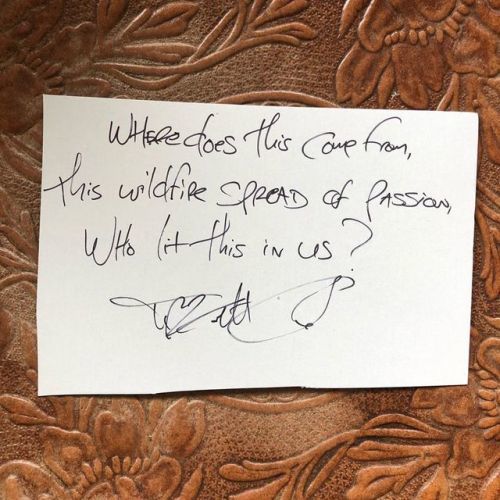 Where does this come from,
this wildfire spread of passion,
Who lit this in us?